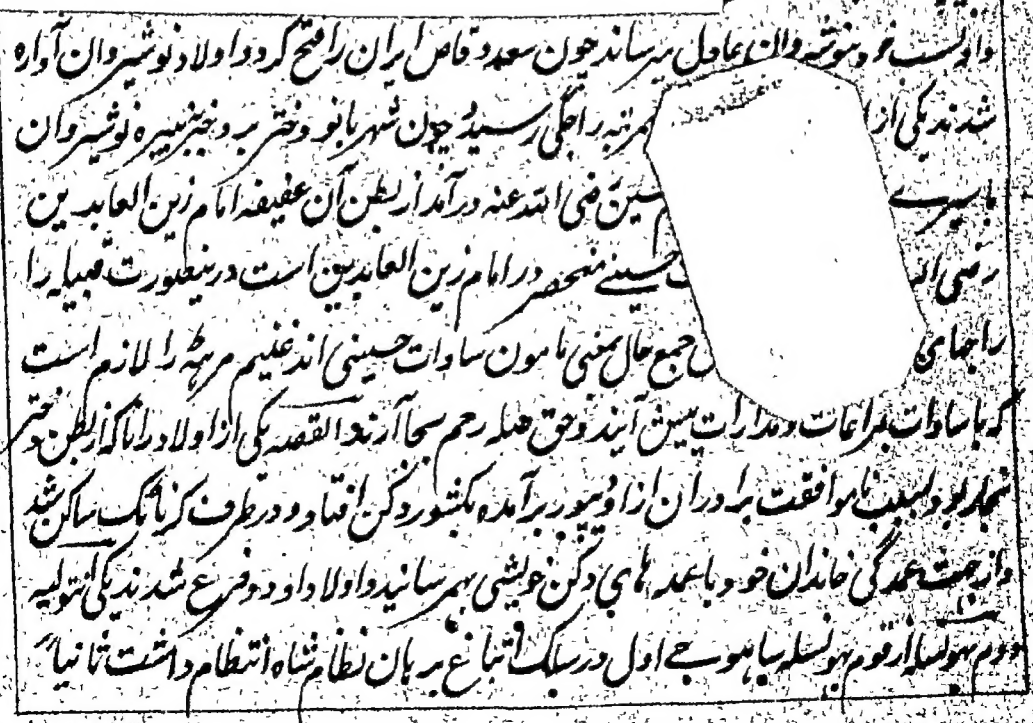 و او نسب خود بنوشیروان عادل میرساند چون سعد وقاص ایران را فتح کرد و اولاد نوشیروان آواره
شدند یکی از بمرتبه راجگی رسید و چون شهربانو دختر یزدجرد نبیره نوشیروان
باسیری حسین رضی الله عنه درآمد از بطن آن عفیفه امام زین العابدین
رضی حسینی منحصر در امام زین العابدین است درینصورت قبیله را
راجهای جمیع حال بمعنی مامون سادات حسینی اند غنیم مرهته را لازم است
که با سادات بمراعات و مدارات پیش آیند و حق صله رحم بجا آرند القصه یکی از اولاد رانا که از بطن دختر
نجار بود بسبب ناموافقت برادران از اودیپور برآمده بکشور دکن افتاد و در طرف کرناتک ساکن شد
و از جهت عمدگی خاندان خود با عمده های دکن خویشی بهم رسانید و اولاد او دو فرع شدند یکی انتولیه
دوم بهونسله از قوم بهونسله ساهوجی اول در سلک اتباع برهان نظام شاه انتظام داشت ثانیا